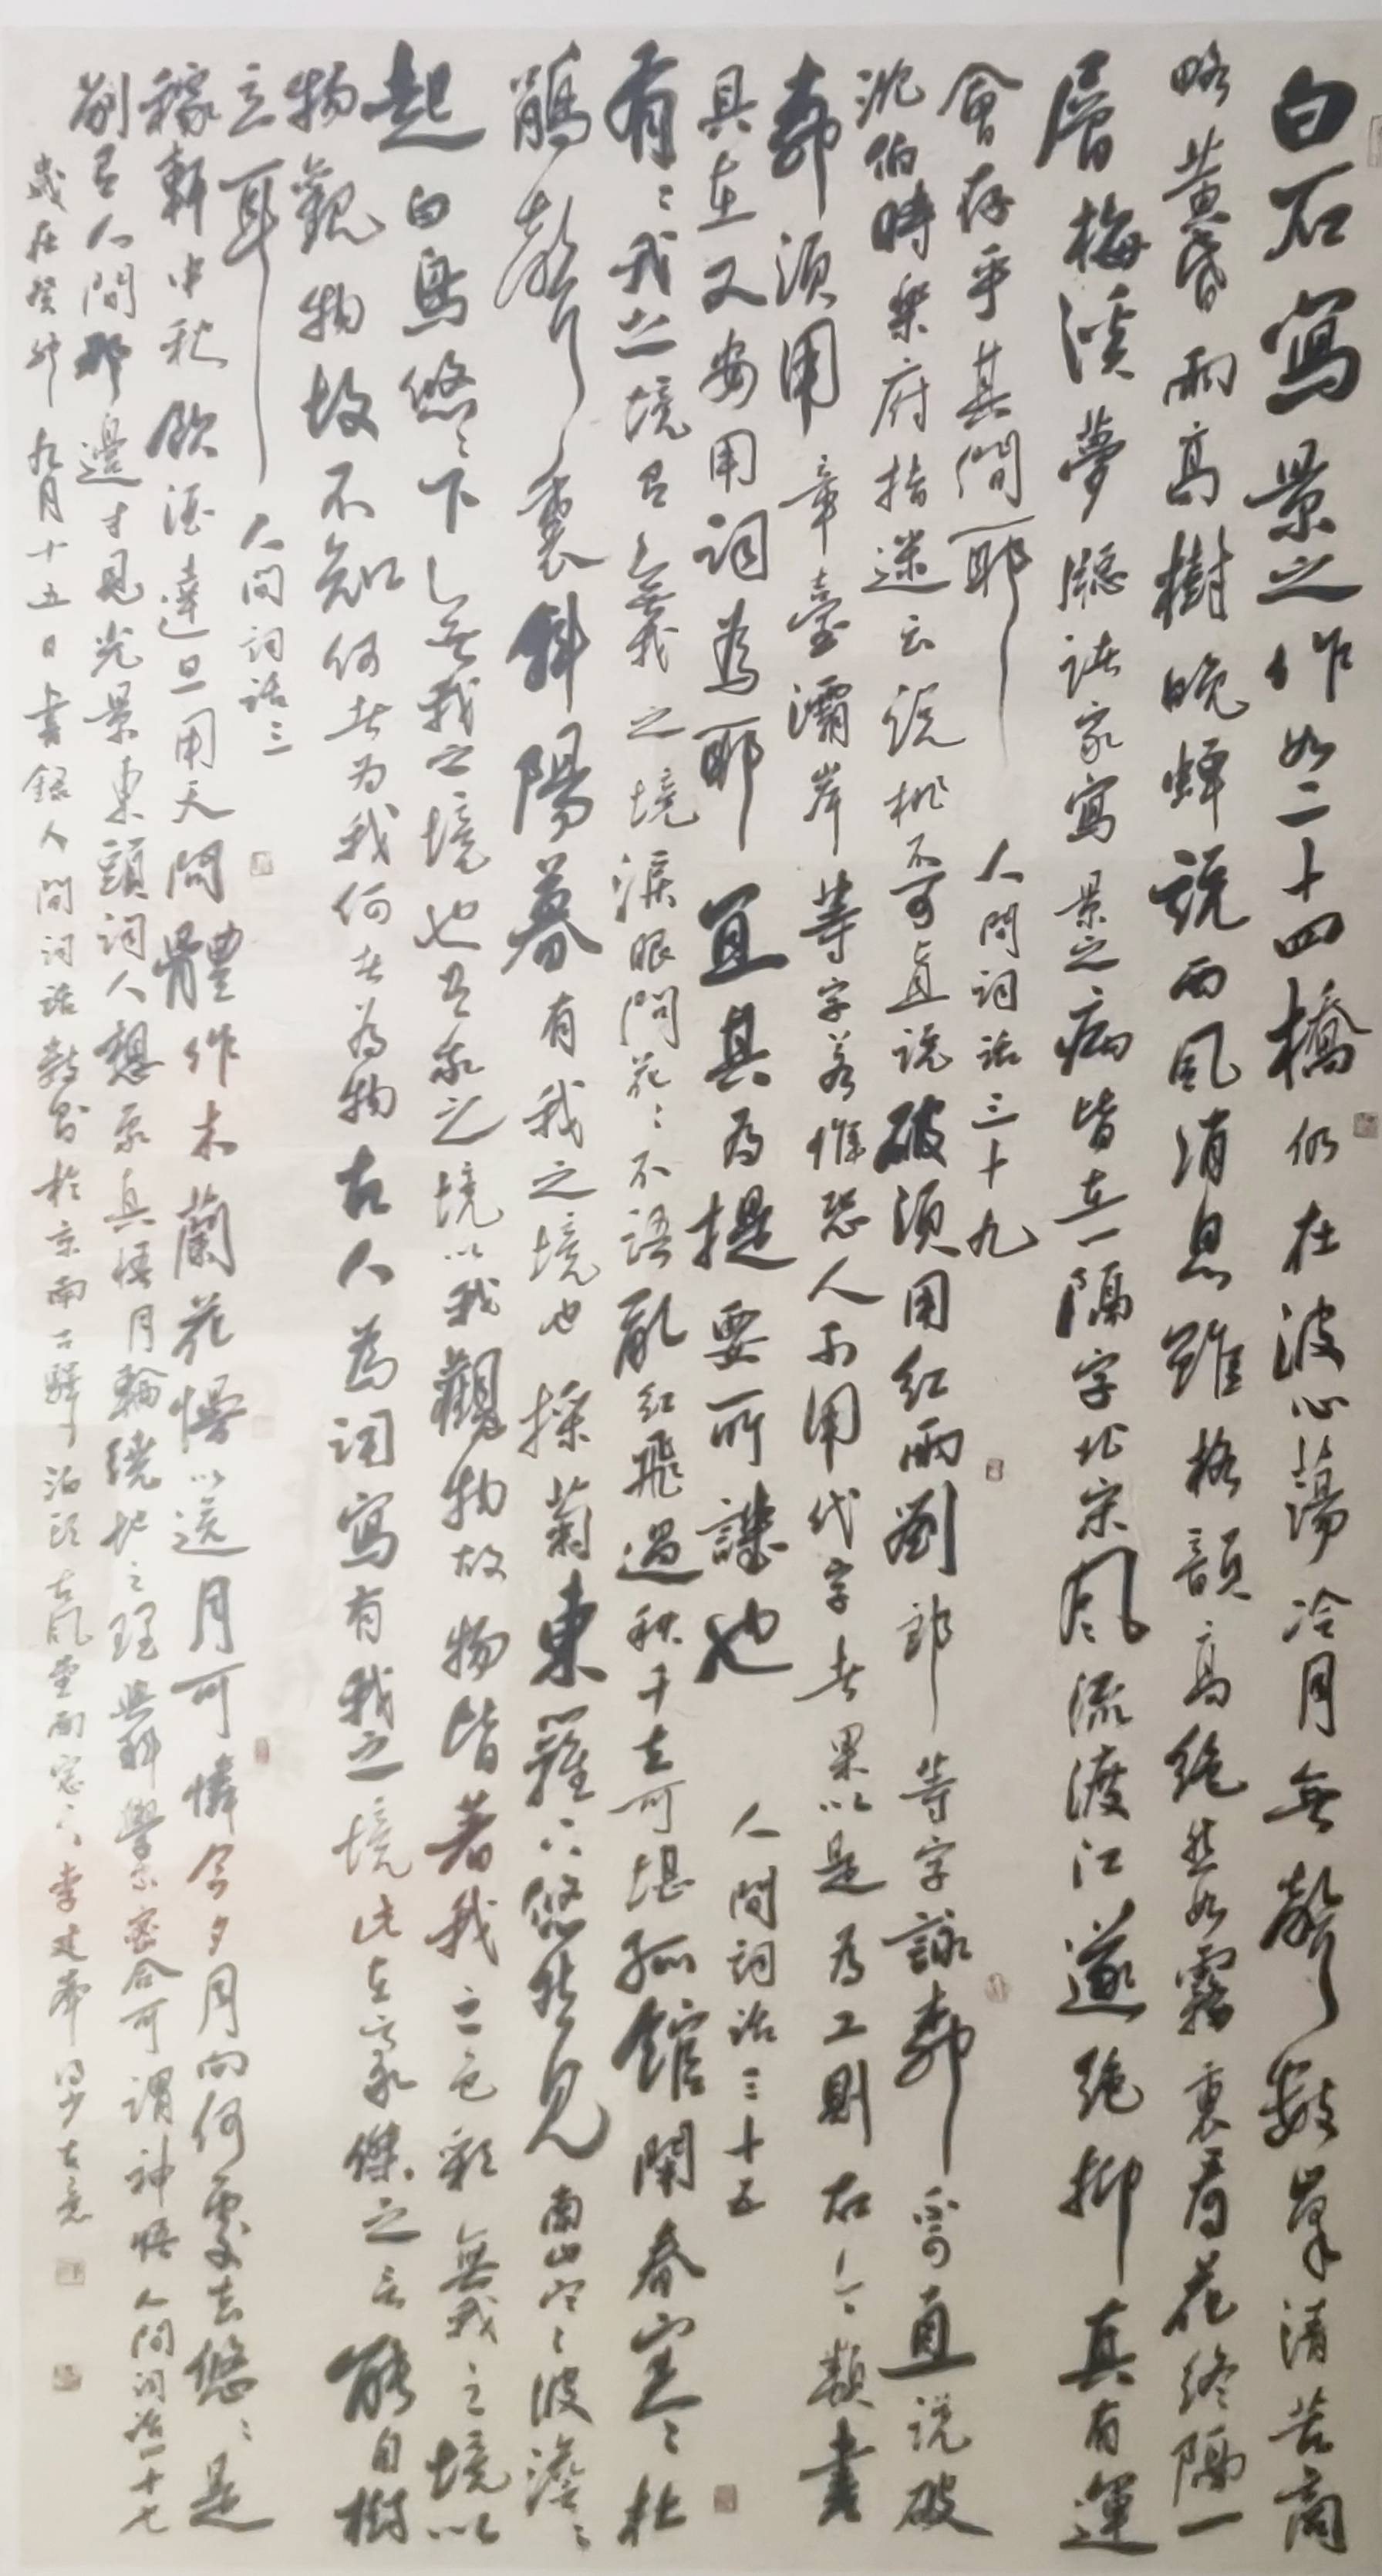 白石寫景之作如二十四橋仍在波心蕩冷月無聲數峯清苦商
略黃昏雨高樹晚蟬說西風消息雖格韻高絕然如霧裏看花終隔一
層梅溪夢牕諸家寫景之病皆在一隔字北宋風流渡江遂絕抑真有運
會存乎其間耶 人間詞話三十九
沈伯時樂府指迷云說桃不可直說破須用紅雨劉郎等字詠柳不可直說破
柳須用章臺灞岸等字若惟恐人不用代字者果以是為工則古今類書
具在又安用詞為耶宜其為提要所譏也 人間詞話三十五
有有我之境有無我之境淚眼問花花不語亂紅飛過秋千去可堪孤館閉春寒杜
鵑聲裏斜陽暮有我之境也採菊東籬下悠然見南山寒寒波澹澹
起白鳥悠悠下無我之境也有我之境以我觀物故物皆著我之色彩無我之境以
物觀物故不知何者为我何者為物古人為詞寫有我之境此在豪傑之士能自樹
立耳 人間詞話三
稼軒中秋飲酒達旦用天問體作木蘭花慢以送月可憐今夕月向何處去悠悠是
別有人間那邊才見光景東頭詞人想象直悟月輪繞地之理與科學家密合可謂神悟人間詞話十七
歲在癸卯九月十五日書錄人間詞話數則於京南古驛泊頭古風堂南窓下李建華